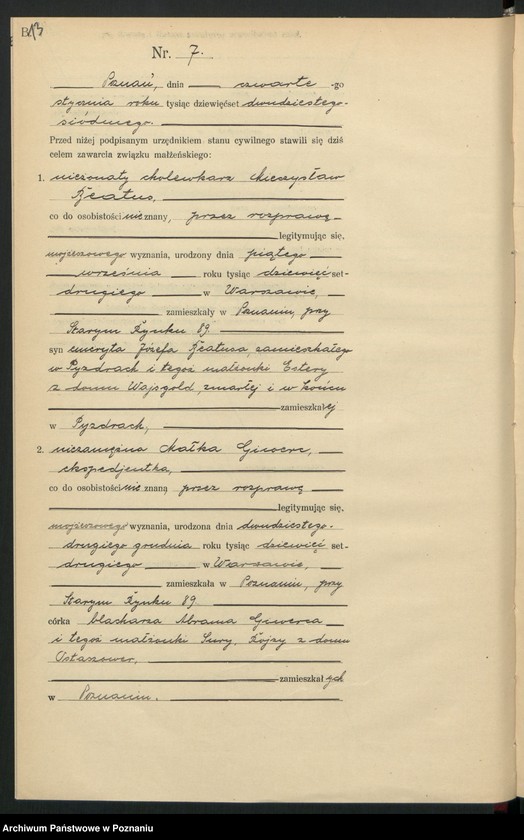 B 13
Nr. 7.
Poznań, dnia czwarte-go
stycznia roku tysiąc dziewięćset dwudziestego-
siódmego.
Przed niżej podpisanym urzędnikiem stanu cywilnego stawili się dziś
celem zawarcia związku małżeńskiego:
1. nieżonaty cholewkarz Mieczysław
co do osobistości nie znany, przez rozprawę
legitymując się,
mojżeszowego wyznania, urodzony dnia piątego
września roku tysiąc dziewięćset-
drugiego w Warszawie,
zamieszkały w Poznaniu, przy
Starym Rynku 89.
syn emeryta Józefa zamieszkałego
w Pyzdrach i tegoż małżonki Estery
z domu Wajsgold, zmarłej i w końcu
zamieszkałej
w Pyzdrach,
2. niezamężna Małka Giwerc,
ekspedjentka,
co do osobistości nie znaną przez rozprawę
legitymując się,
mojżeszowego wyznania, urodzona dnia dwudziestego-
drugiego grudnia roku tysiąc dziewięćset-
drugiego w Warszawie,
zamieszkała w Poznaniu, przy
Starym Rynku 89
córka blacharza Abrama Giwerca
i tegoż małżonki Sury, Rojzy z domu
zamieszkałych
w Poznaniu.
Archiwum Państwowe w Poznaniu